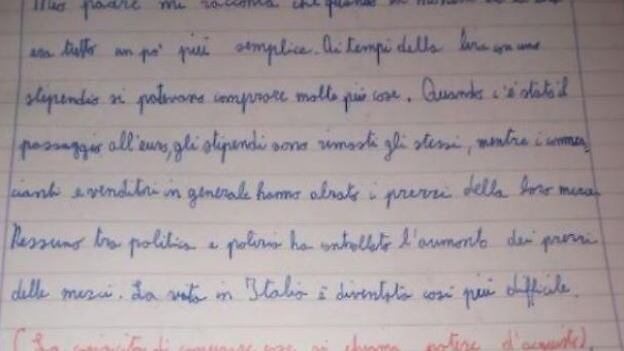 Mio padre mi racconta che quando
era tutto un po' più semplice. Ai tempi della lira con uno
stipendio si potevano comprare molte più cose. Quando c'è stato il
passaggio all'euro, gli stipendi sono rimasti gli stessi, mentre i commer
cianti e venditori in generale hanno alzato i prezzi della loro merce
Nessuno tra politica e polizia ha controllato l'aumento dei prezzi
delle merci. La vita in Italia è diventata così più difficile.
(La capacità di comprare cose si chiama potere d'acquisto).